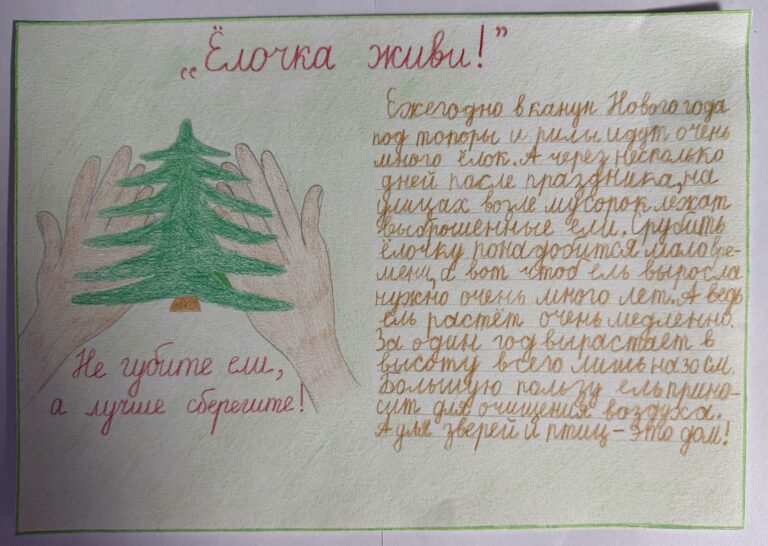 „Ёлочка живи!”
Ежегодно в канун Нового года
под топоры и пилы идут очень
много ёлок. А через несколько
дней после праздника, на
улицах возле мусорок лежат
выброшенные ели. Срубить
ёлочку понадобится мало вре-
мени, а вот чтоб ель выросла
нужно очень много лет. А ведь
ель растёт очень медленно.
За один год вырастает в
высоту всего лишь на 30 см.
Большую пользу ель прино-
сит для очищения воздуха.
А для зверей и птиц – это дом!
Не губите ели,
а лучше сберегите!